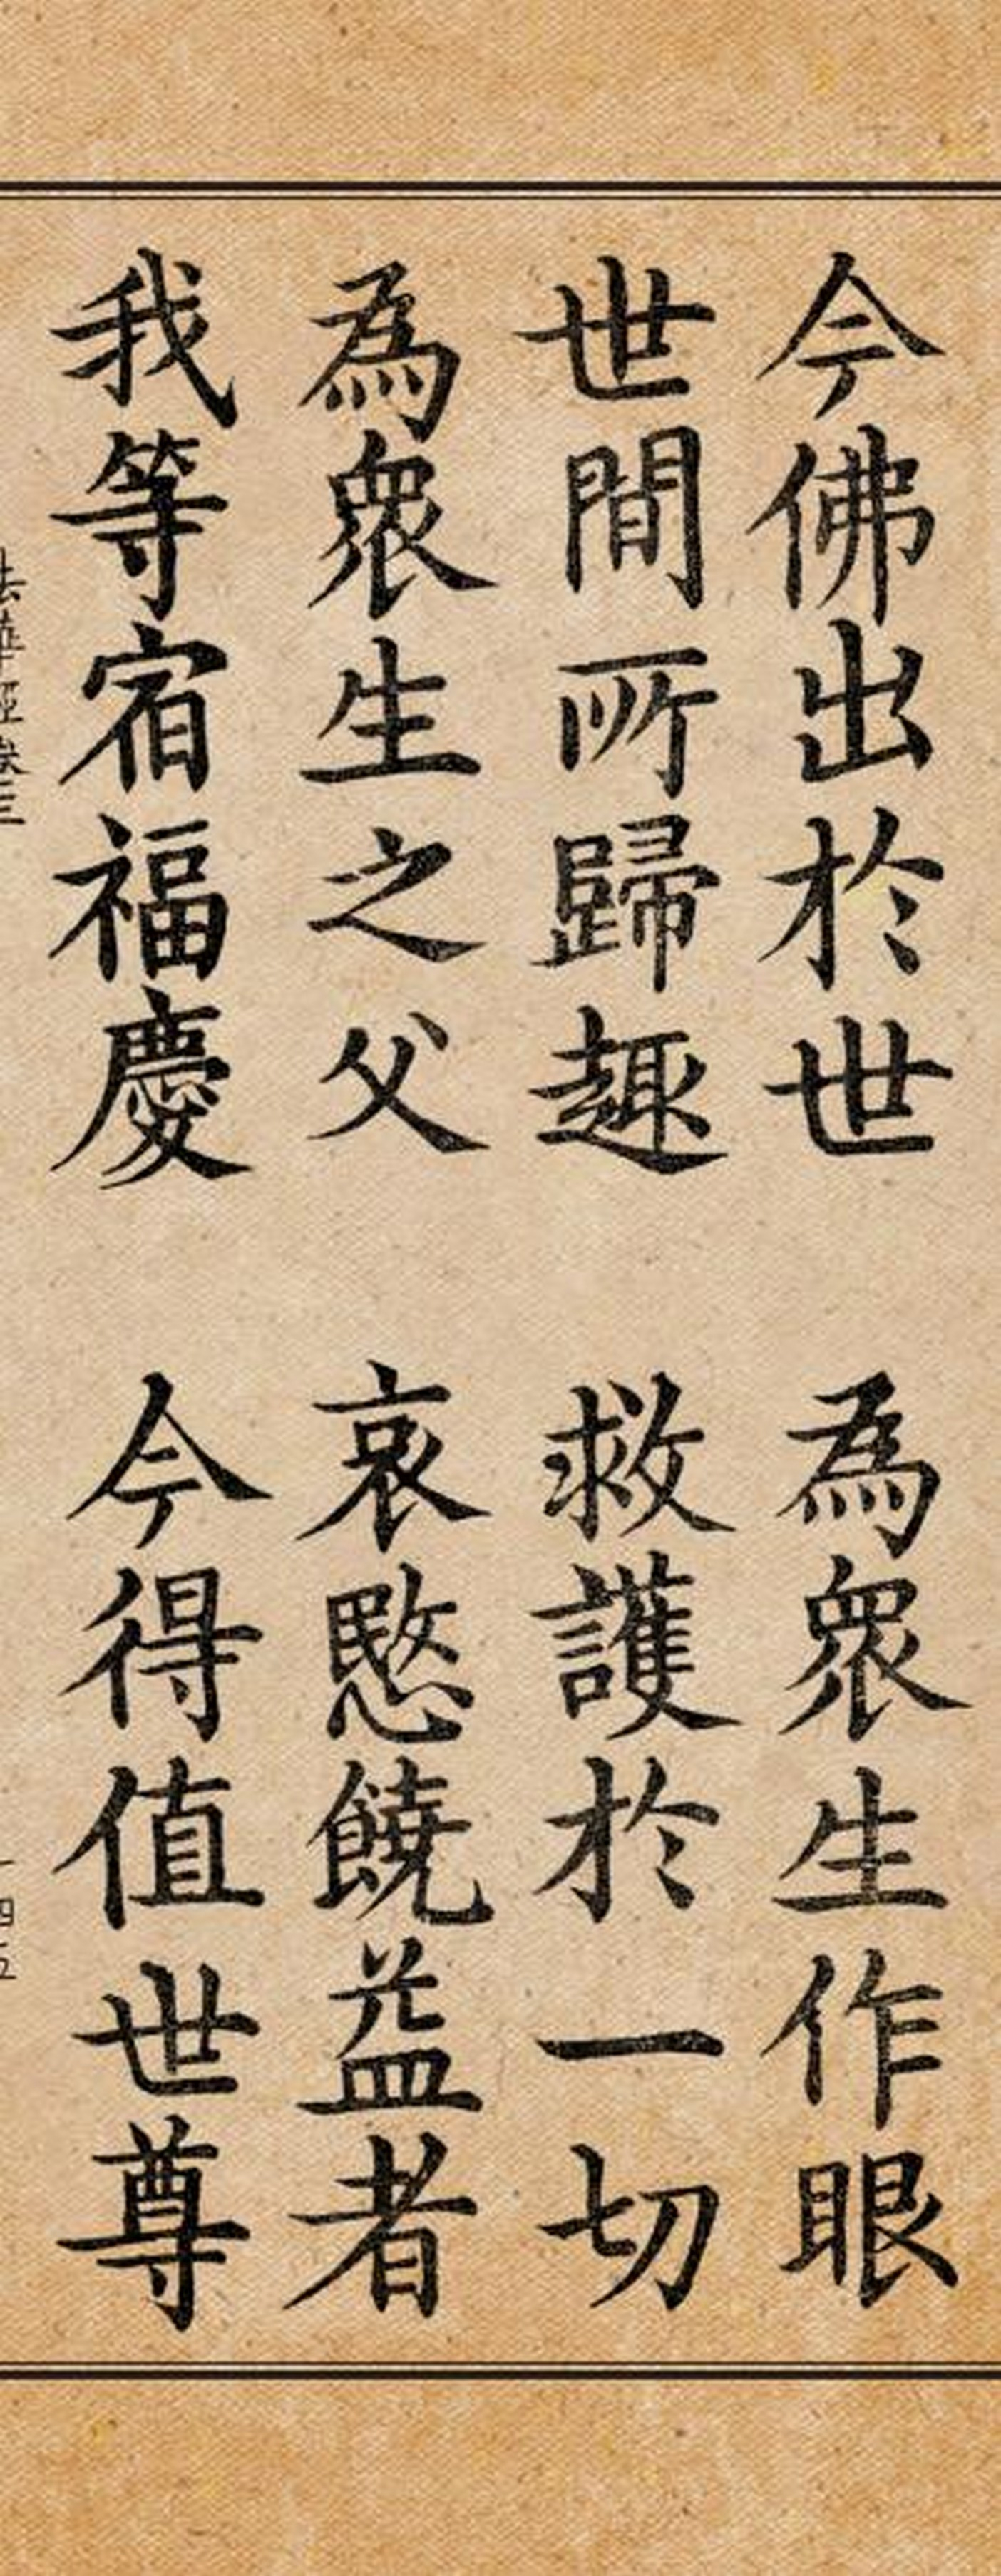 今佛出於世　為衆生作眼
世間所歸趣　救護於一切
為衆生之父　哀愍饒益者
我等宿福慶　今得值世尊
法華經卷三　一四五